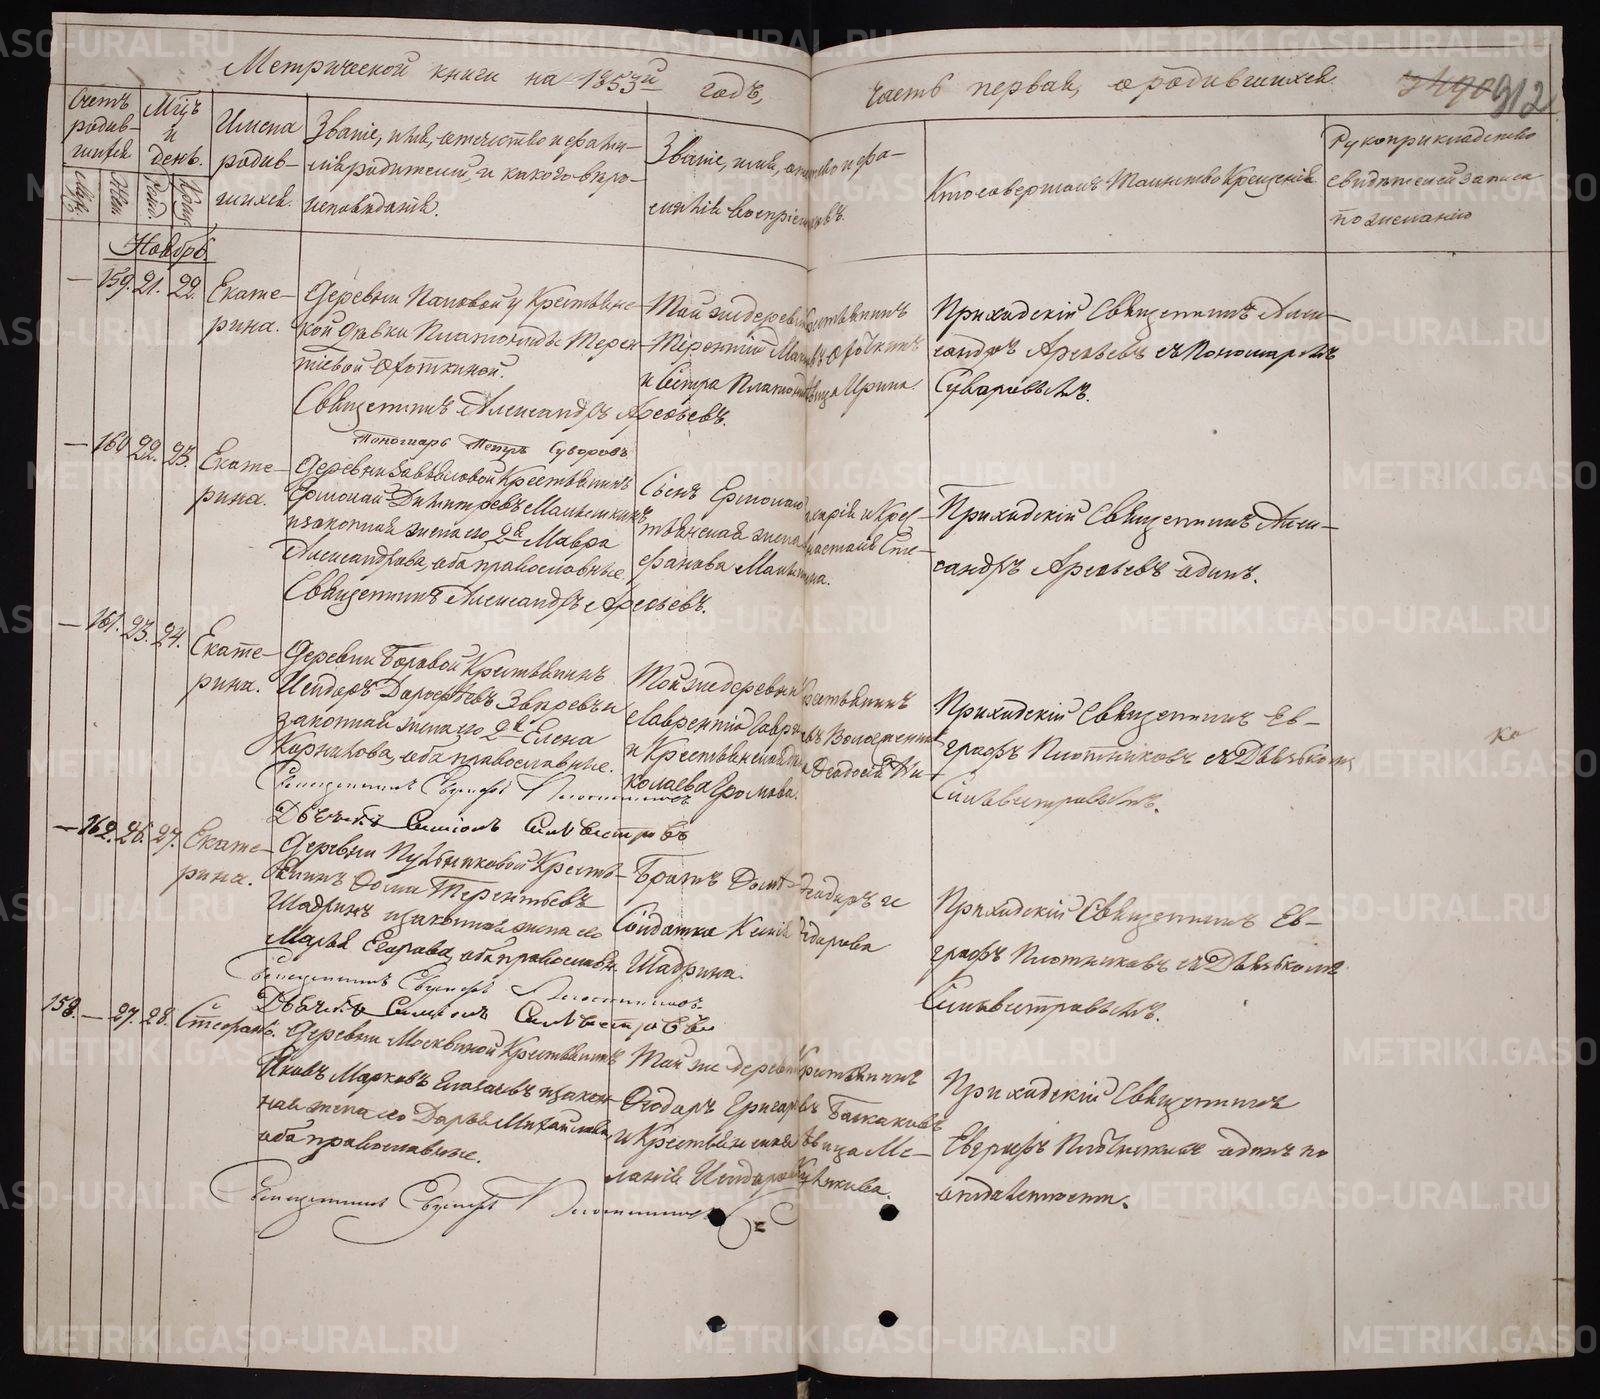 Метрической книги на 1853й годъ, часть первая, о родившихся.
912
Счетъ родив-
шихся
Муж.
Жен.
Мцъ
и
день.
Рожд.
Крещ.
Имена
родив-
шихся.
Званіе, имя, отечество и фами-
лія родителей, и какого вѣро-
исповѣданія.
Званіе, имя, отчество и фа-
милія воспріемниковъ.
Кто совершалъ Таинство Крещенія
Рукоприкладство
свидѣтелей записи
по желанію
Ноябрь.
— 159. 21. 22.
Екате-
рина.
Деревни Паповой у Крестьянс-
кой дѣвки Платониды Терен-
тіевой Охоткиной.
Священникъ Александръ Арефьевъ.
Пономарь Петръ Суворовъ
Той же деревни Крестьянинъ
Терентій Охоткинъ
и Сестра Платониды дѣвица Ирина.
Приходскій Священникъ Алек-
сандръ Арефьевъ съ Пономаремъ
Суваровымъ.
— 160 22. 23.
Екате-
рина.
Деревни Завьяловой Крестьянинъ
Ермолай Димитріевъ Малышкинъ
и законная жена его 2я Мавра
Александрова, оба православные.
Священникъ Александръ Арефьевъ.
Сынъ Ермолая Захарій и Крес-
тьянская жена Анастасія Сте-
фанова Малышкина.
Приходскій Священникъ Алек-
сандръ Арефьевъ одинъ.
— 161. 23. 24.
Екате-
рина.
Деревни Боровой Крестьянинъ
Исидоръ Дорофѣевъ Звѣревъ и
законная жена его 2я Елена
Карпилова, оба православные.
Священникъ Евграфъ Плотниковъ
Дьячекъ Симіонъ Силвестровъ
Той же деревни Крестьянинъ
Лаврентій
и Крестьянская Ѳеодосія Ни-
колаева Громова.
Приходскій Священникъ Ев-
графъ Плотниковъ съ Дьячкомъ
Сильвестровымъ.
ко
— 162. 26. 27.
Екате-
рина.
Деревни Крестья-
нинъ Ѳома Терентьевъ
Шадринъ и законная жена его
Марья Егорова, оба православн.
Священникъ Евграфъ Плотниковъ.
Дьячекъ Симіонъ Силвестровъ
Братъ Ѳеодоръ и
Солдатка Ксенія Ѳедорова
Шадрина.
Приходскій Священникъ Ев-
графъ Плотниковъ съ Дьячкомъ
Сильвестровымъ.
158. — 27. 28.
Стефанъ.
Деревни Москвиной Крестьянинъ
Яковъ Марковъ и закон-
ная жена его Дарья Михайлова,
оба православные.
Священникъ Евграфъ Плотниковъ
Той же деревни Крестьянинъ
Ѳеодоръ Григорьевъ
и Крестьянская дѣвица Ме-
ланія Исидорова
Приходскій Священникъ
Евграфъ Плотниковъ одинъ по
отдаленности.
METRIKI.GASO-URAL.RU